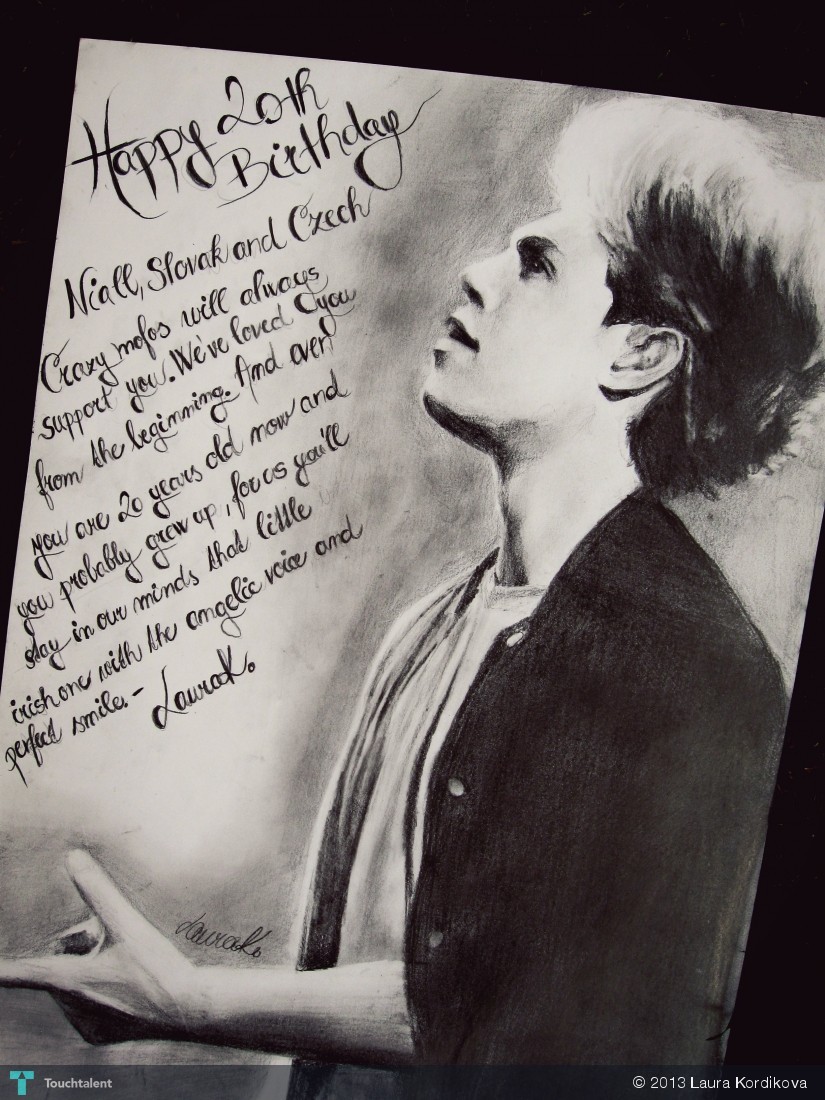 Happy 20th
Birthday
Niall, Slovak and Czech
Crazy mofos will always
support you. We've loved you
from the beginning. And even
you are 20 years old now and
you probably grow up, for us you'll
stay in our minds that little
irish one with the angelic voice and
perfect smile. - LauraK.
LauraK.
Touchtalent
© 2013 Laura Kordikova